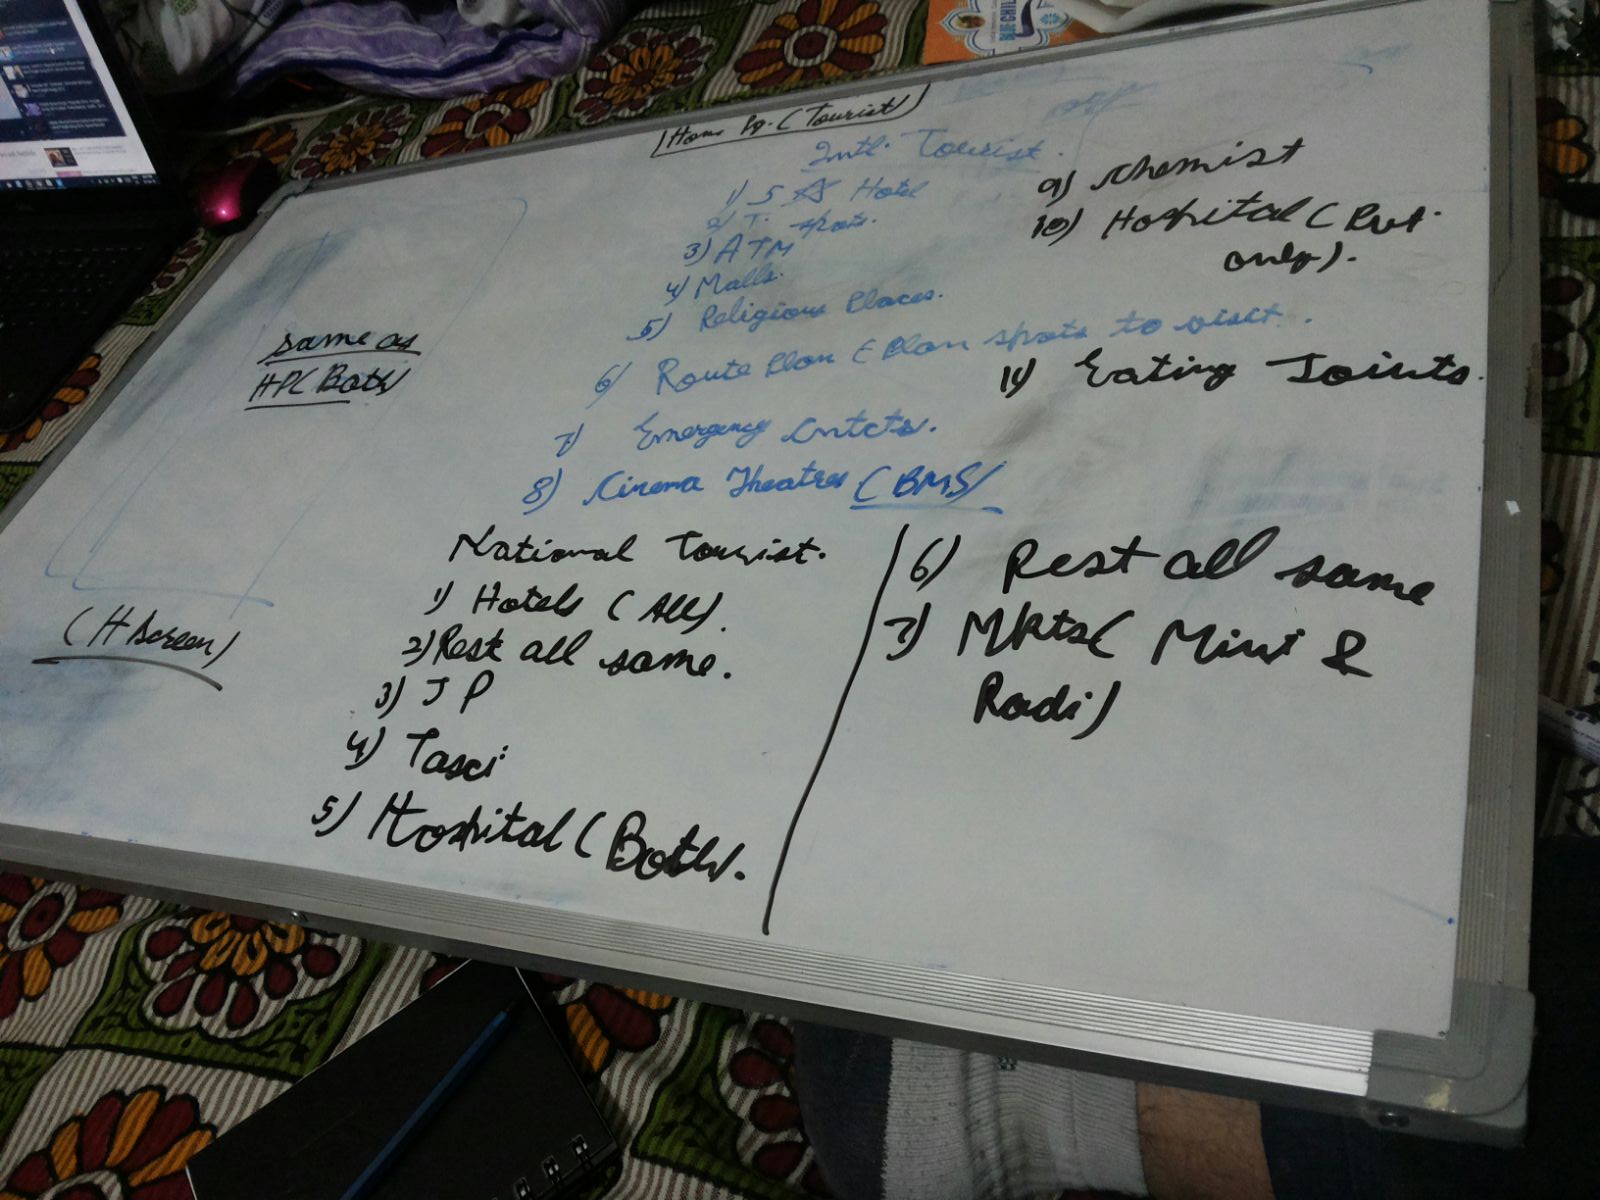 Home Pg. (Tourist)
Intl. Tourist.
1) 5 ☆ Hotel
2) T. spots.
3) ATM
4) Malls.
5) Religious Places.
6) Route Plan & Plan spots to visit.
7) Emergency Cntcts.
8) Cinema Theatres (BMS)
9) Chemist
10) Hospital (Pvt.
only).
11) Eating Joints.
same as
HP (Both)
(H Screen)
National Tourist.
1) Hotels (All).
2) Rest all same.
3) J P
4) Tasci
5) Hospital (Both).
6) Rest all same
7) Mkts (Mini &
Radi)
BLUE CHIL